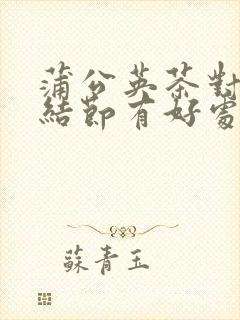 蒲公英茶對
結節有好處
蘇青玉